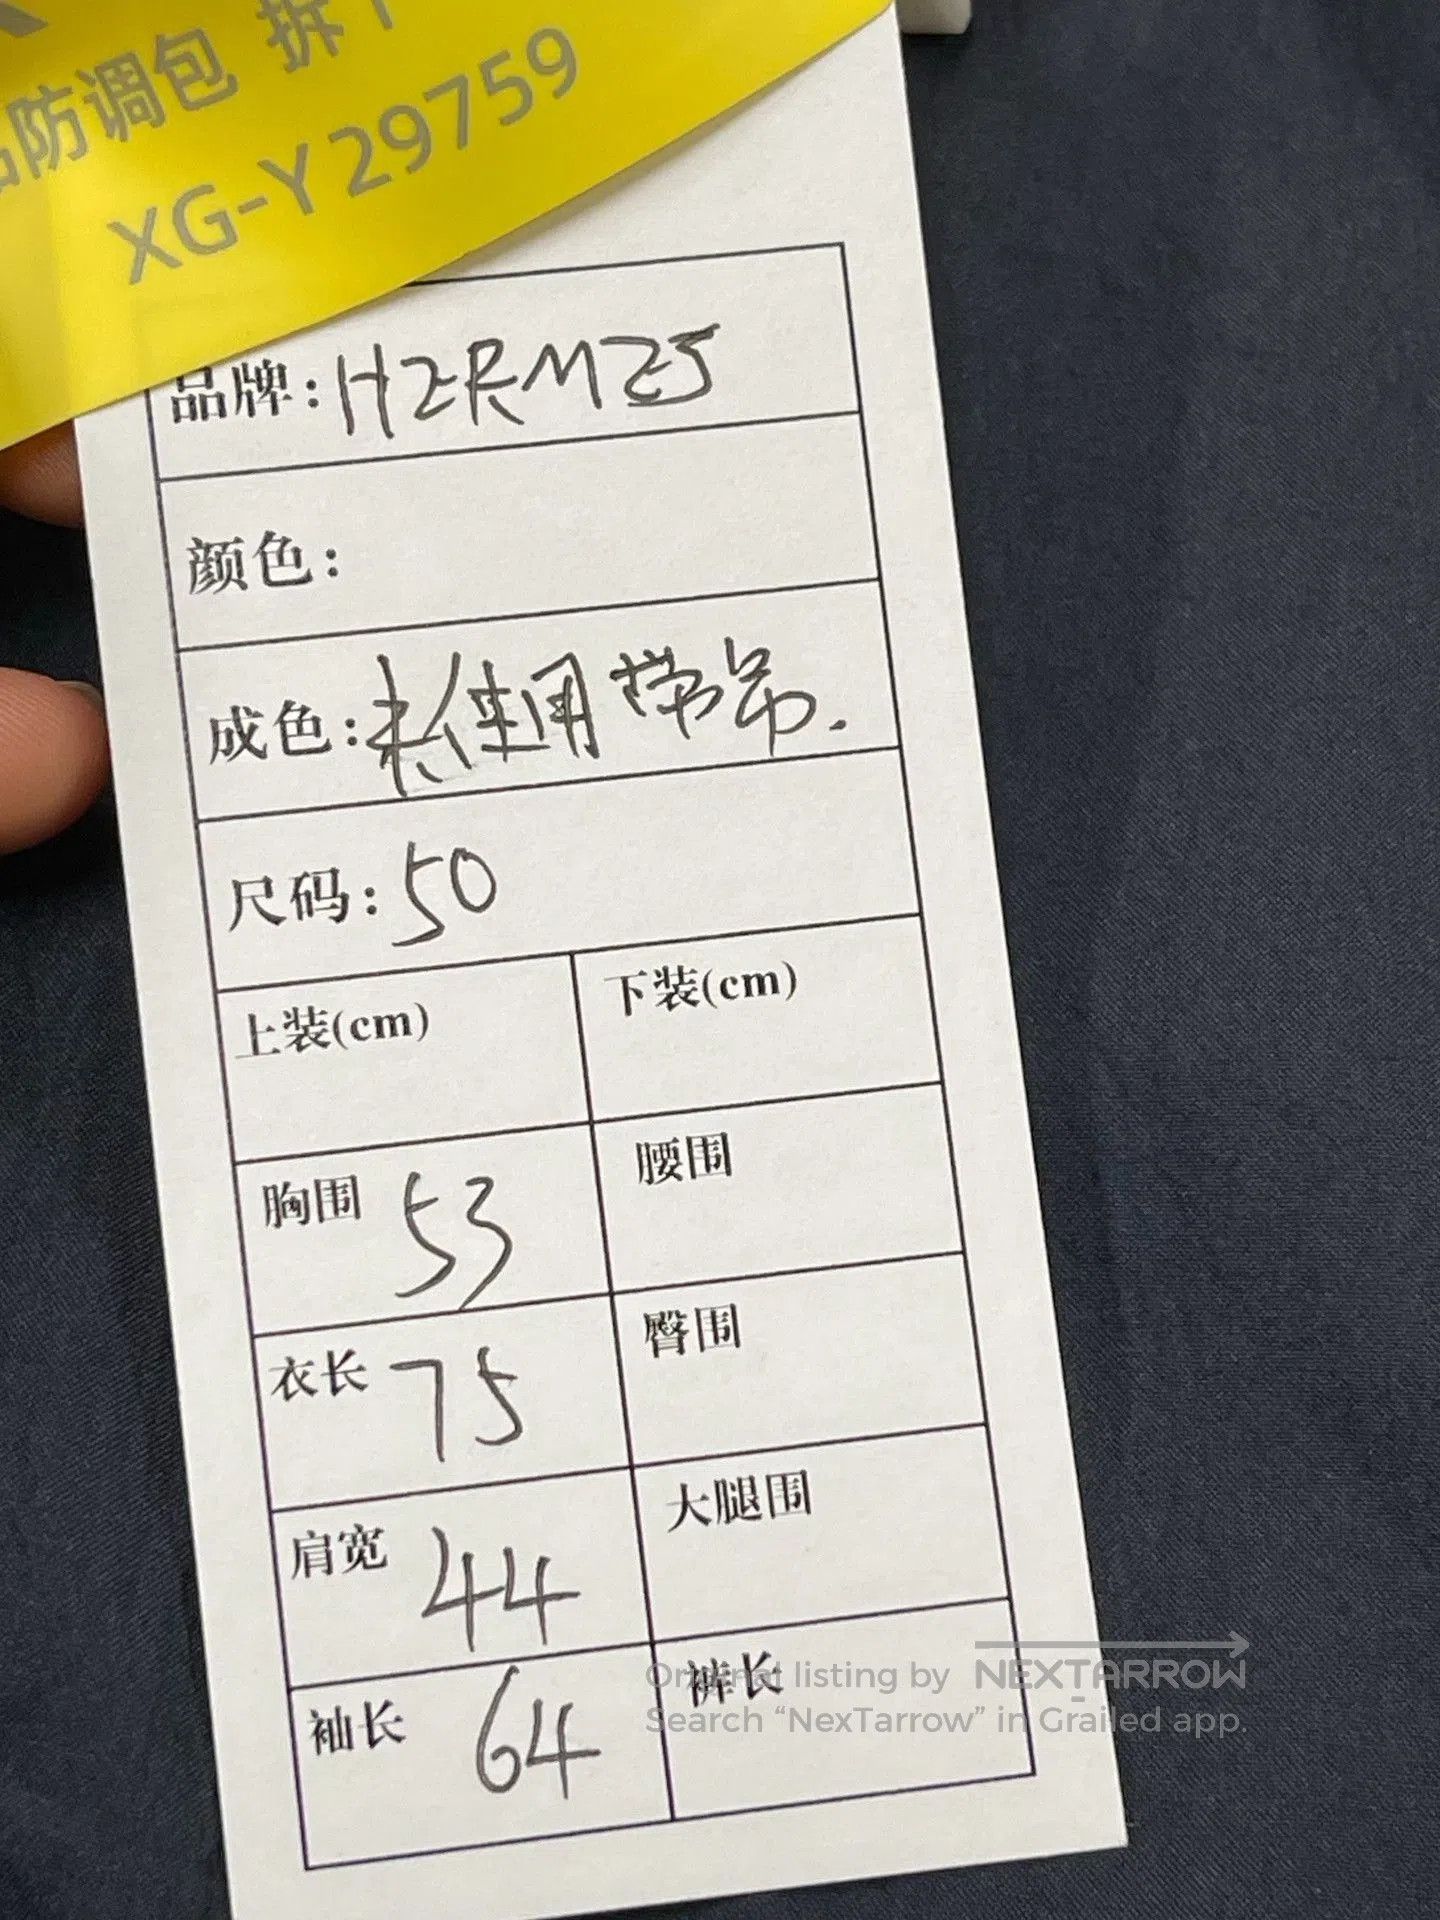 品防调包 拆下
XG-Y29759
品牌: HERMES
颜色:
成色: 未使用 带吊.
尺码: 50
上装(cm) 下装(cm)
胸围 53 腰围
衣长 75 臀围
肩宽 44 大腿围
袖长 64 裤长
Original listing by NEXTARROW
Search “NexTarrow” in Grailed app.